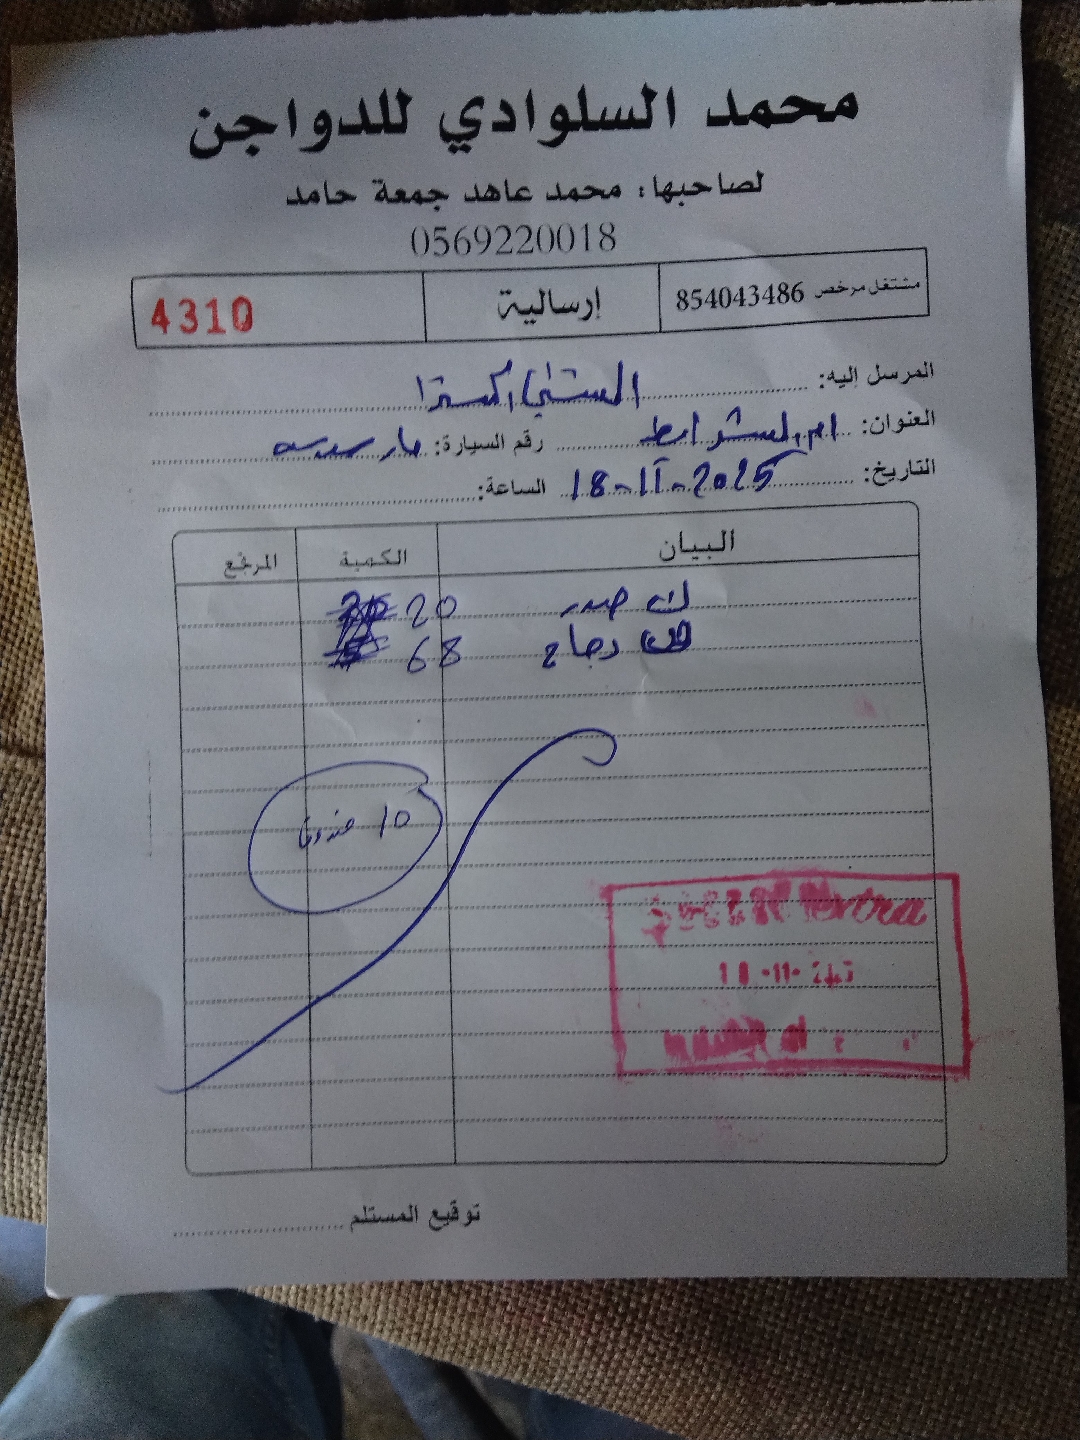 محمد السلوادي للدواجن
لصاحبها: محمد عاهد جمعة حامد
0569220018
مشتغل مرخص 854043486 إرسالية 4310
المرسل إليه: السنتي اكسترا
العنوان: ام الشرايط رقم السيارة:
التاريخ: 18-11-2025 الساعة:
البيان الكمية المرتجع
ك صدر 20
دجاج 68
10 صندوق
extra
18-11-
توقيع المستلم